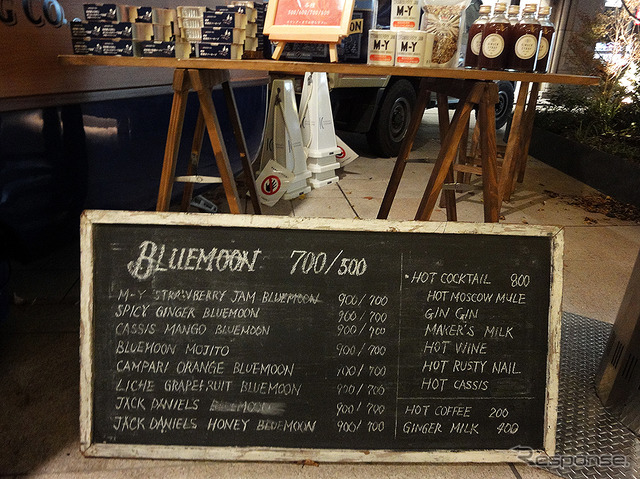 G CO.
M-Y
M-Y
M-Y
BLUEMOON 700/500
M-Y STRAWBERRY JAM BLUEMOON 900/700
SPICY GINGER BLUEMOON 900/700
CASSIS MANGO BLUEMOON 900/700
BLUEMOON MOJITO 900/700
CAMPARI ORANGE BLUEMOON 900/700
LICHE GRAPEFRUIT BLUEMOON 900/700
JACK DANIELS 900/700
JACK DANIELS HONEY BLUEMOON 900/700
• HOT COCKTAIL 800
HOT MOSCOW MULE
GIN GIN
MAKER'S MILK
HOT WINE
HOT RUSTY NAIL
HOT CASSIS
HOT COFFEE 200
GINGER MILK 400
Response.